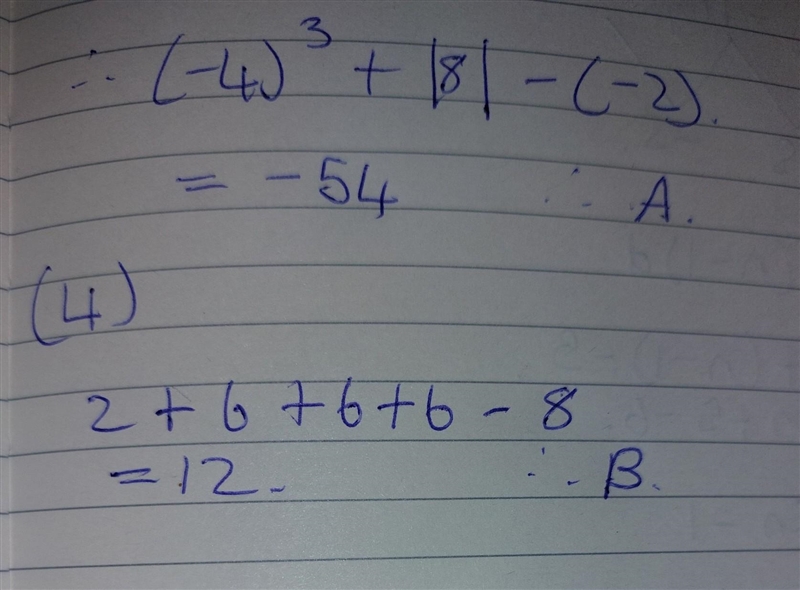 ∴ (-4)³ + |8| - (-2).
= -54 ∴ A.
(4)
2 + 6 + 6 + 6 - 8
= 12. ∴ B.